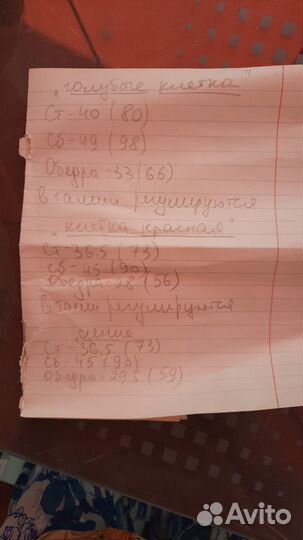 "голубые клетка"
Ст-40 (80)
Сб-49 (98)
Обедра-33 (66)
в талии регулируются
"клетка красная"
Ст-36.5 (73)
Сб-45 (90)
Обедра-28 (56)
в талии регулируются
синие
Ст-36,5 (73)
Сб-45 (90)
Обедра-29,5 (59)
Avito